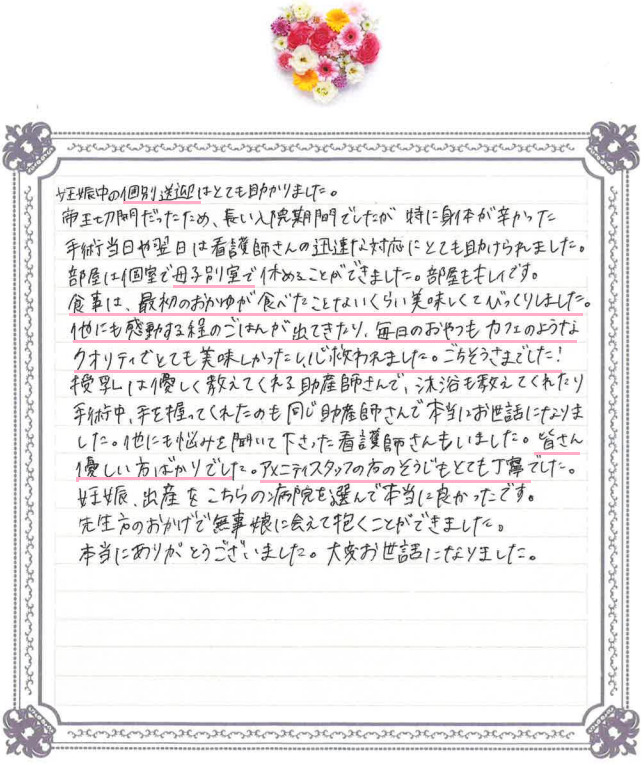 妊娠中の個別送迎はとても助かりました。
帝王切開だったため、長い入院期間でしたが 特に身体が辛かった
手術当日や翌日は看護師さんの迅速な対応にとても助けられました。
部屋は個室で母子別室で休めることができました。部屋もキレイです。
食事は、最初のおかゆが食べたことないくらい美味しくてびっくりしました。
他にも感動する程のごはんが出てきたり、毎日のおやつもカフェのような
クオリティでとても美味しかったし、心救われました。ごちそうさまでした！
授乳は優しく教えてくれる助産師さんで、沐浴も教えてくれたり
手術中、手を握ってくれたのも同じ助産師さんで本当にお世話になりま
した。他にも悩みを聞いて下さった看護師さんもいました。皆さん
優しい方ばかりでした。アメニティスタッフの方のそうじもとても丁寧でした。
妊娠、出産をこちらの病院を選んで本当に良かったです。
先生方のおかげで無事娘に会えて抱くことができました。
本当にありがとうございました。大変お世話になりました。